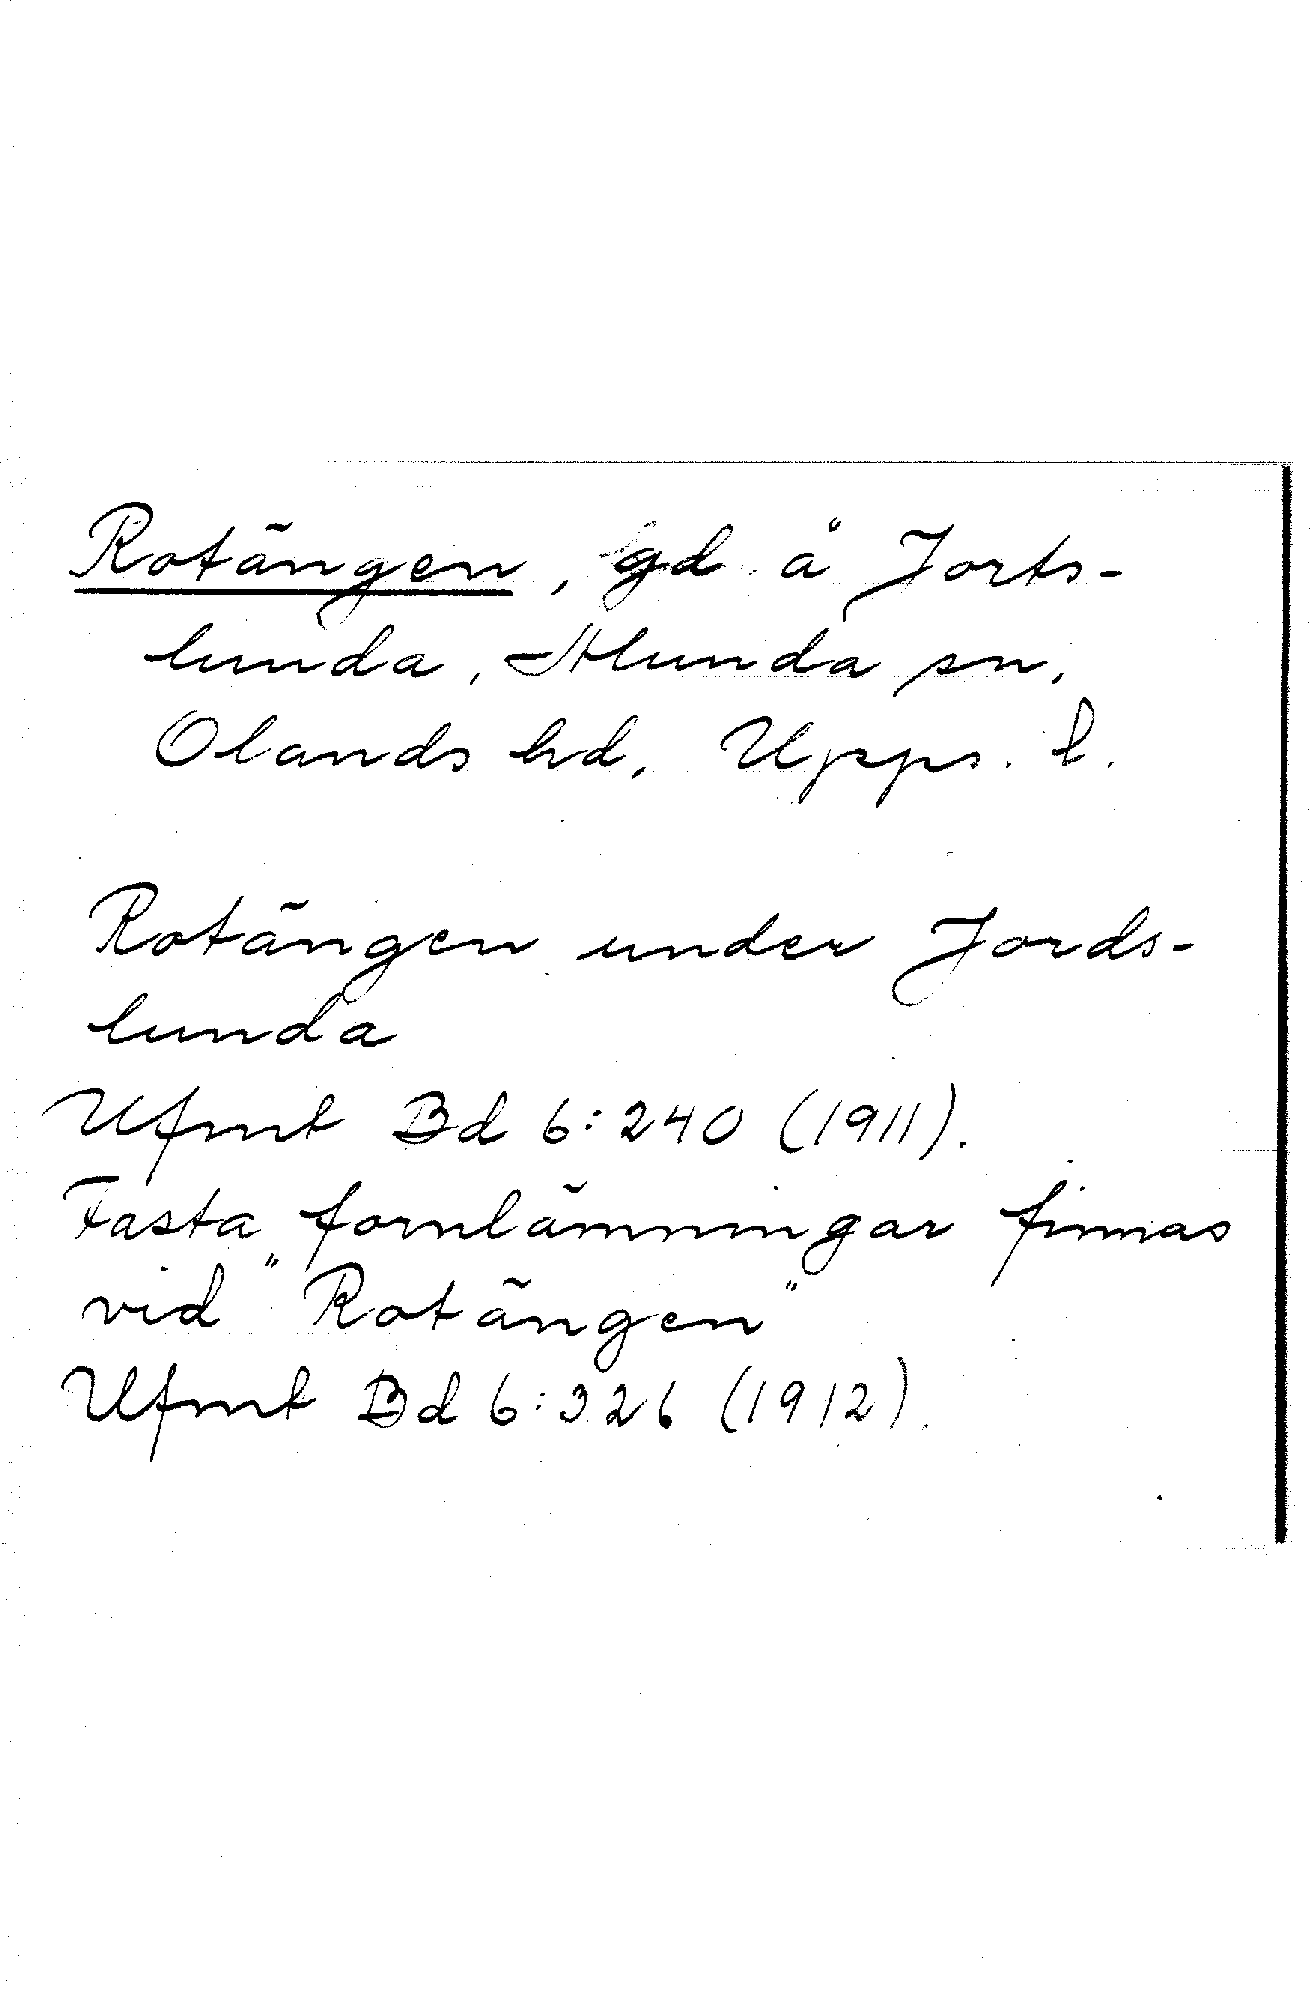 Rotängen, gd å Jorts-
lunda, Alunda sn,
Olands hd, Upps. l.
Rotängen under Jords-
lunda
Ufmt Bd 6:240 (1911).
Fasta fornlämningar finnas
vid "Rotängen"
Ufmt Bd 6:326 (1912).